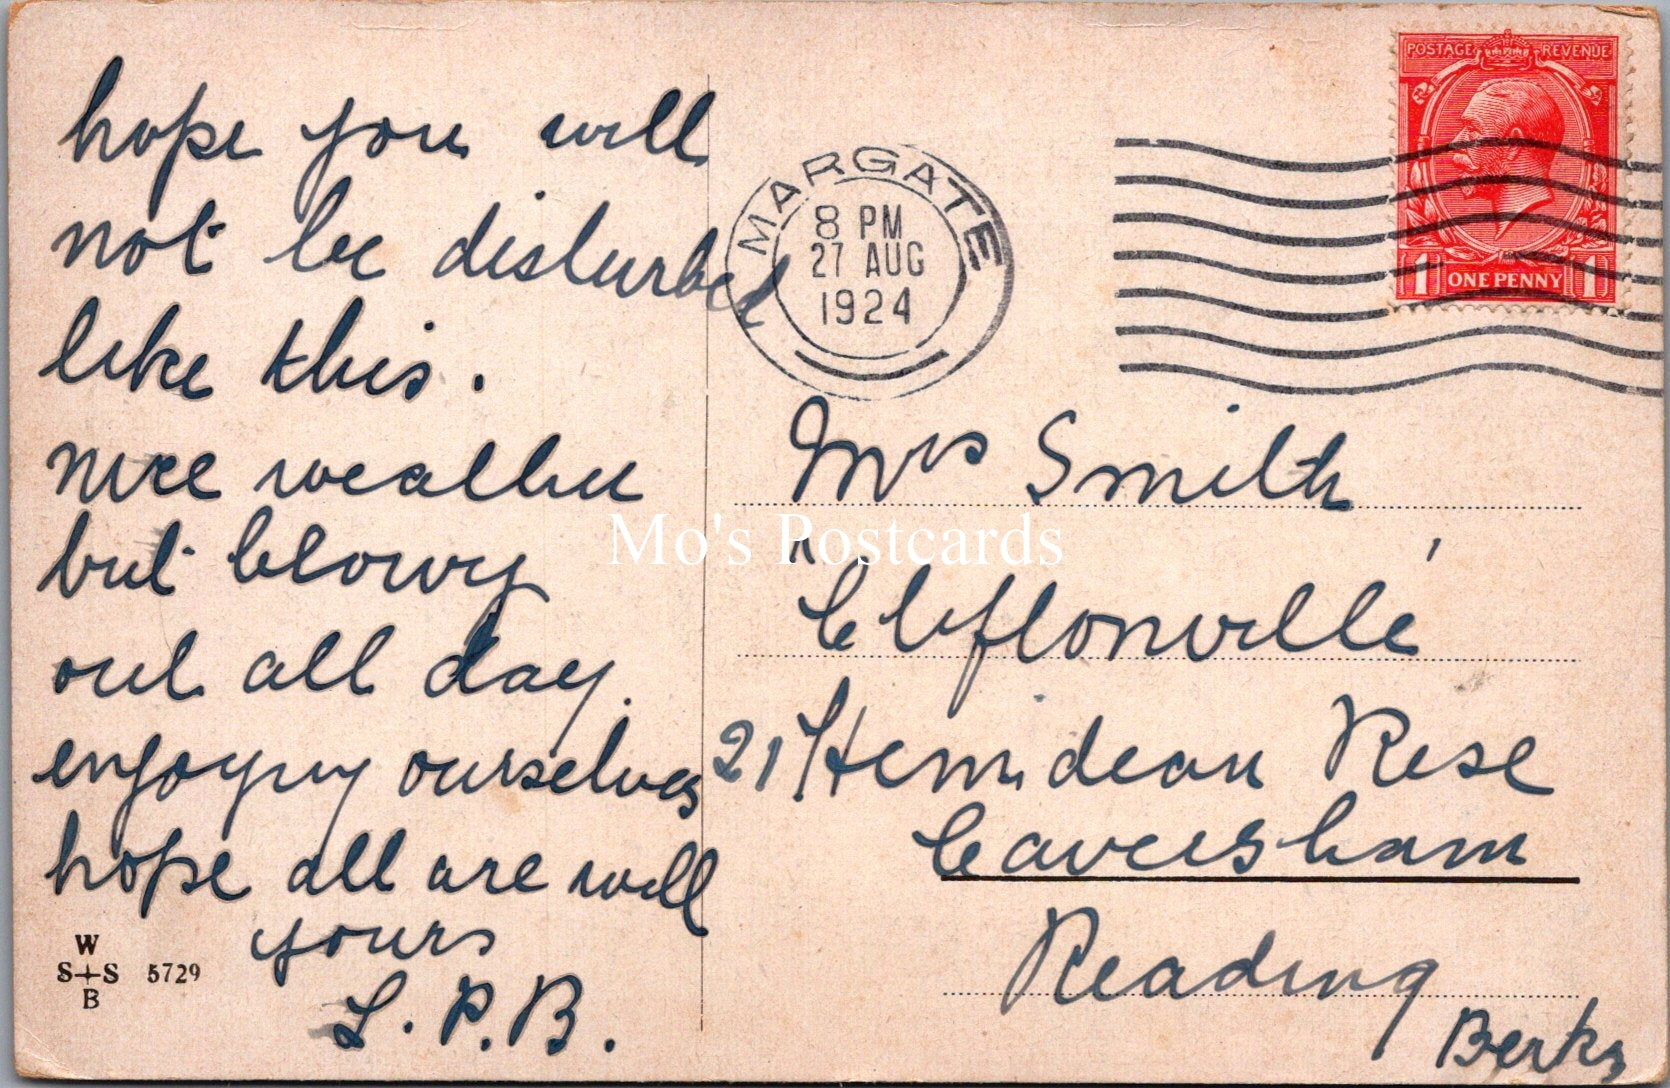 hope you will
not be disturbed
like this.
nice weather
but blowy
out all day.
enjoying ourselves
hope all are well
yours
L. P. B.
W
S+S 5729
B
MARGATE
8 PM
27 AUG
1924
POSTAGE REVENUE
1 ONE PENNY 1
Mrs Smith
Cliftonville,
21 Hemdean Rise
Caversham
Reading
Berks
Mo's Postcards